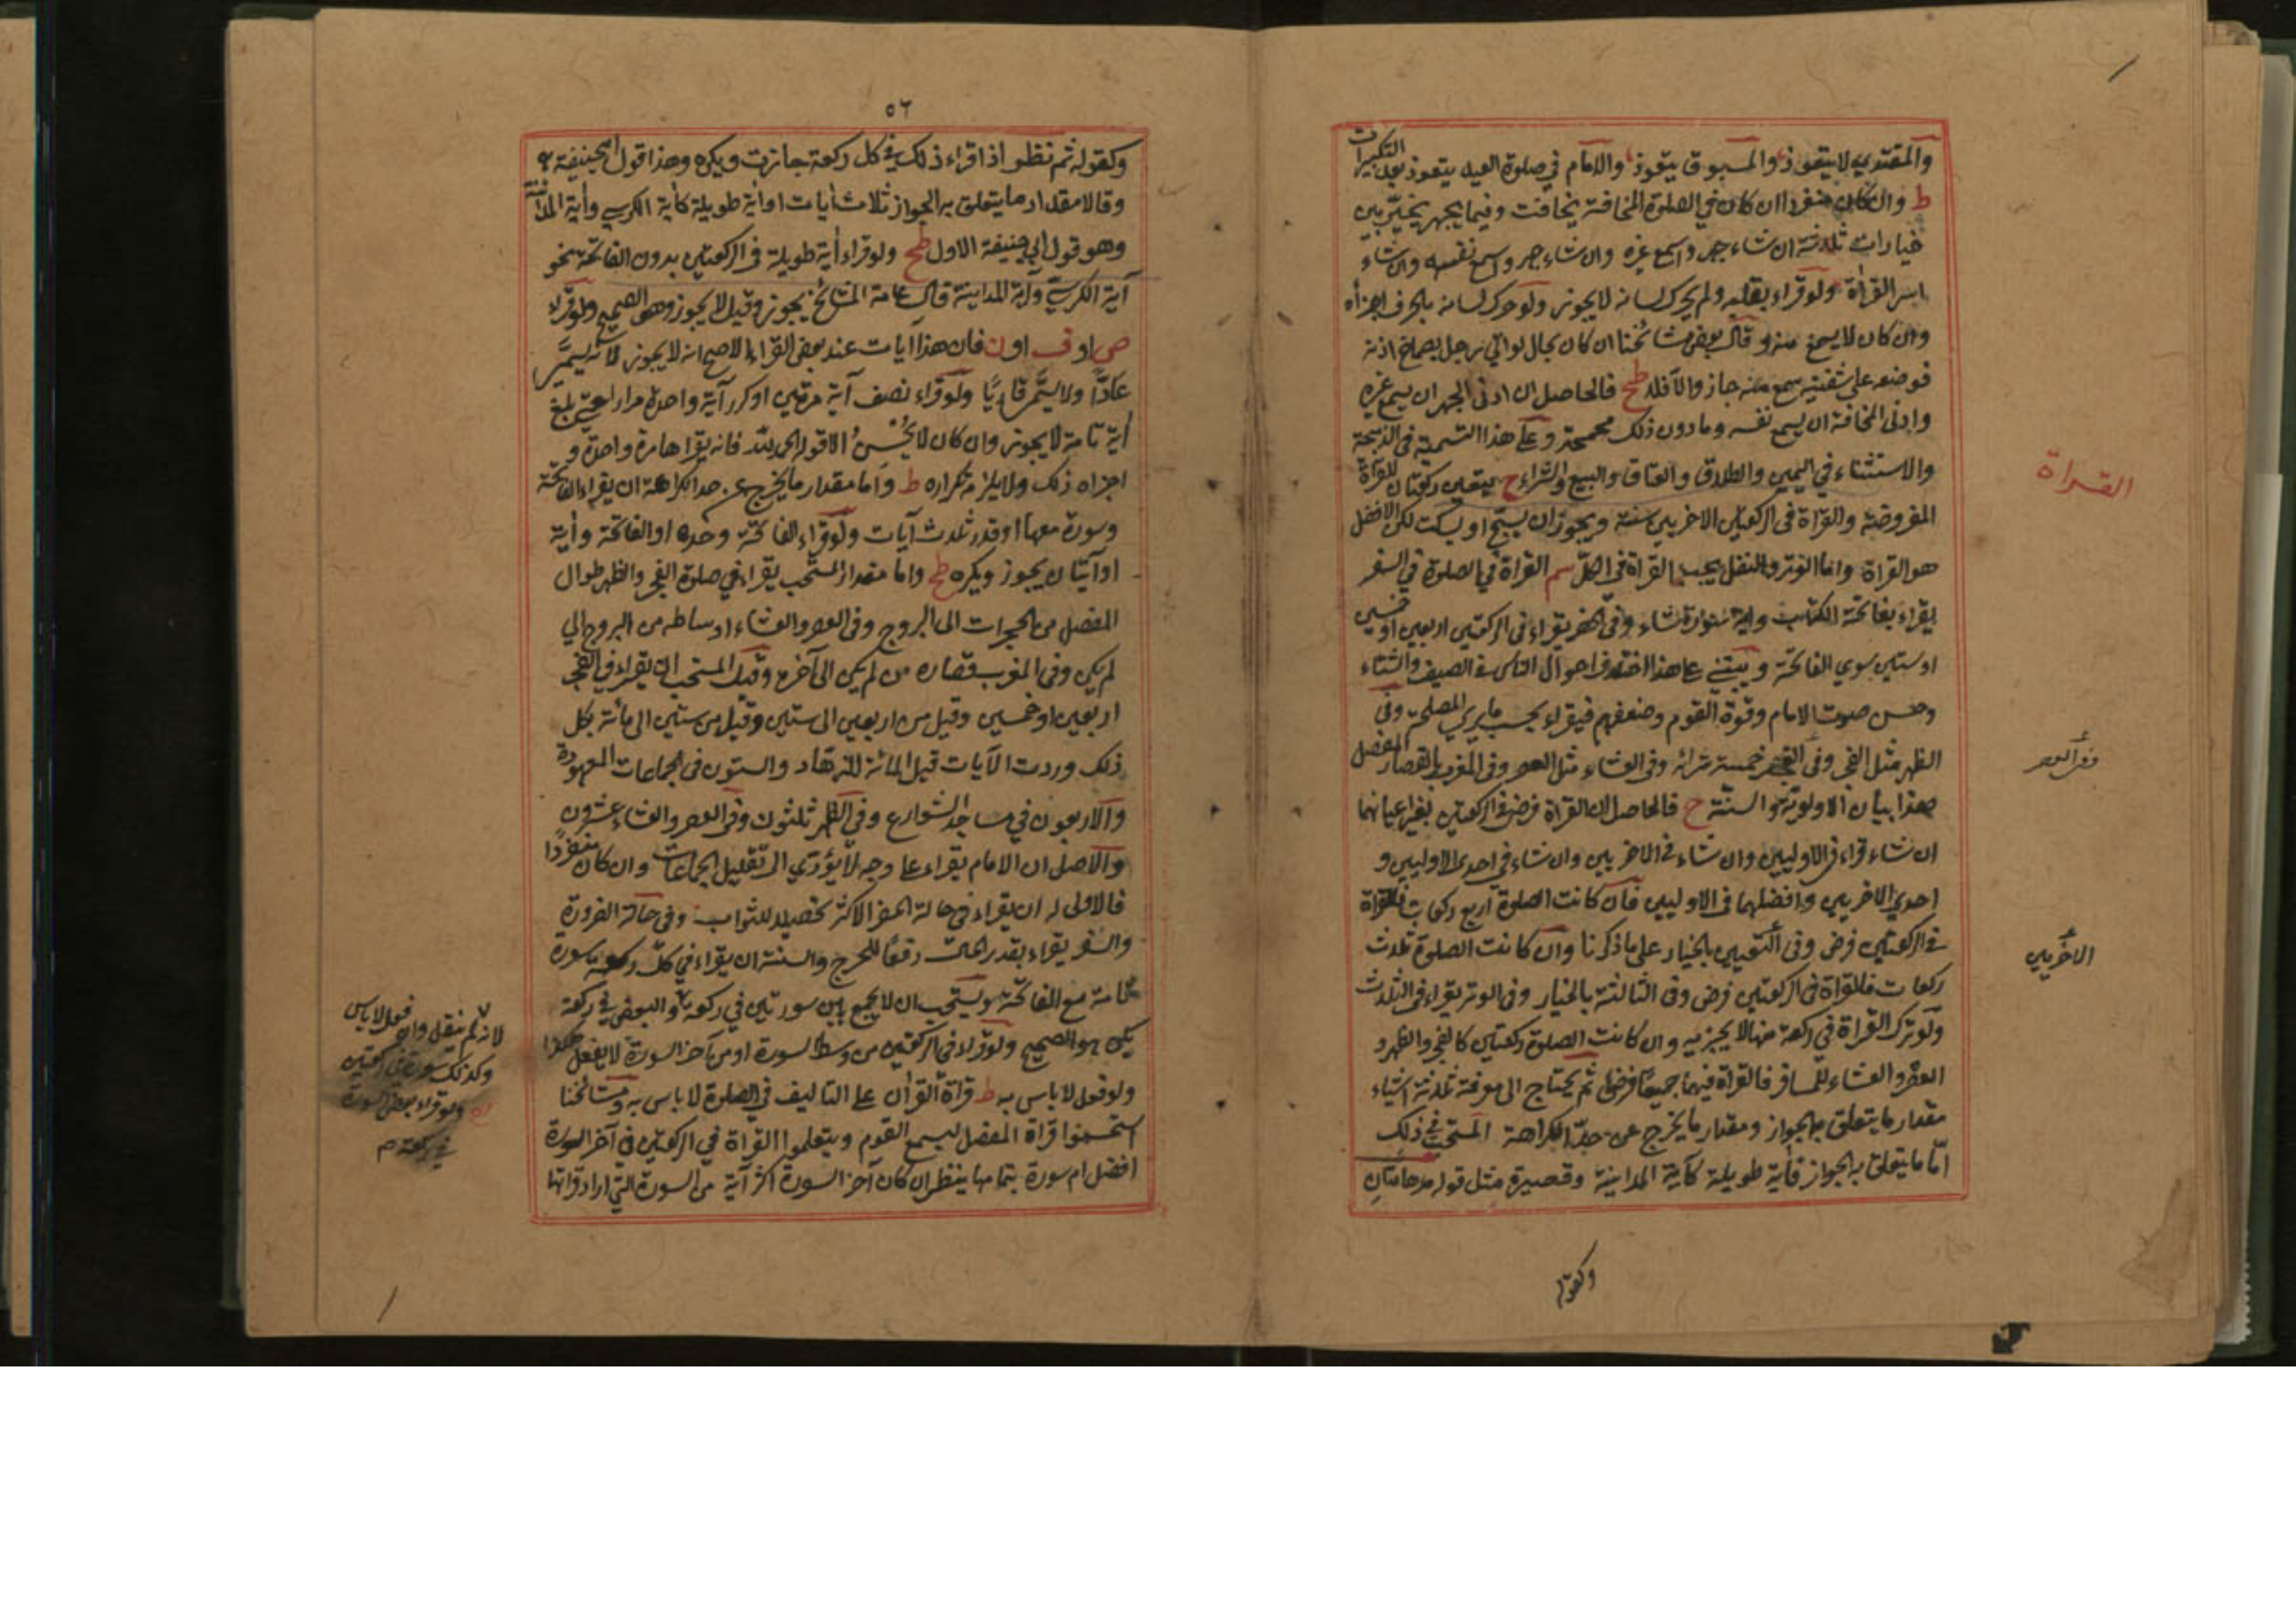 والمقتدي لا يتعوذ والمسبوق يتعوذ والامام في صلوة العيد يتعوذ بعد التكبيرات
ط وان كان منفردا ان كان في الصلوة المخافتة يخافت وفيما يجهر يخير بين
خيارات ثلثة ان شاء جهر واسمع غيره وان شاء جهر واسمع نفسه وان شاء
اسر القراة ولو قراء بقلبه ولم يحرك لسانه لا يجوز ولو حرك لسانه بالحرف اجزاه
وان كان لا يسمع منه و قال بعض مشائخنا ان كان بحال لو اتى رجل بصماخ اذنه
فوضعه على شفتيه سمع منه جاز والا فلا طح فالحاصل ان ادنى الجهر ان يسمع غيره
وادنى المخافتة ان يسمع نفسه وما دون ذلك مجمجة وعلى هذا التسمية في الذبيحة
والاستثناء في اليمين والطلاق والعتاق والبيع والشراء ح يتعين ركعتان للقراة
القراة
المفروضة والقراة في الركعتين الاخريين سنة ويجوز ان يسبح او يسكت لكن الافضل
هو القراة واما الوتر والنفل يجب القراة في الكل سم القراة في الصلوة في السفر
يقراء بفاتحة الكتاب واية سورة شاء وفي الحضر يقراء في الركعتين اربعين او خمسين
او ستين سوي الفاتحة ويبتني على هذا اختلاف احوال الناس في الصيف والشتاء
وحسن صوت الامام وقوة القوم وضعفهم فيقراء بحسب ما يري المصلحة وفي
الظهر مثل الفجر وفي العصر خمسة عشر اية وفي العشاء مثل العصر وفي المغرب بالقصار المفصل
وفي العصر
هذا بيان الاولوية والسنة ح فالحاصل ان القراة فرض في الركعتين بغير اعيانهما
ان شاء قراء في الاوليين وان شاء في الاخريين وان شاء في احدى الاوليين و
احدي الاخريين وافضلهما في الاوليين فان كانت الصلوة اربع ركعات فالقراة
في الركعتين فرض وفي الاخريين بالخيار على ما ذكرنا وان كانت الصلوة ثلث
الاخريين
ركعات فالقراة في الركعتين فرض وفي الثالثة بالخيار وفي الوتر يقراء في الثلث
ولو ترك القراة في ركعة منها لا يجزيه وان كانت الصلوة ركعتين كالفجر والظهر و
العصر والعشاء للمسافر فالقراة فيهما جميعًا فرض ثم يحتاج الى معرفة ثلثة اشياء
مقدار ما يتعلق به الجواز ومقدار ما يخرج عن حدّ الكراهة المستحب في ذلك
امّا ما يتعلق به الجواز فاية طويلة كآية المداينة وقصيرة مثل قوله مدهامتان
وكقوله
٥٦
وكقوله ثم نظر اذا قراء ذلك في كل ركعة جازت ويكره وهذا قول ابي حنيفة
وقالا مقدار ما يتعلق به الجواز ثلاث ايات او اية طويلة كاية الكرسي واية المداينة
وهو قول ابي حنيفة الاول طح ولو قراء اية طويلة في الركعتين بدون الفاتحة نحو
آية الكرسي واية المداينة قال عامة المشائخ يجوز وقيل لا يجوز وهو الصحيح ولو قراء
ص او ق او ن فان هذا آيات عند بعض القراء الاصح انه لا يجوز لانه يسمّى
عادًّا ولا يسمّى قاريًا ولو قراء نصف آية مرتين او كرر آية واحدة مرارا حتى يبلغ
اية تامة لا يجوز وان كان لا يُحسنُ الا قوله الحمد لله فانه يقراها مرة واحدة و
اجزاه ذلك ولا يلزمه تكراره ط واما مقدار ما يخرج عن حد الكراهة ان يقراء الفاتحة
وسورة معها او قدر ثلث آيات ولو قراء الفاتحة وحده او الفاتحة واية
او آيتان يجوز ويكره طح واما مقدار المستحب يقراء في صلوة الفجر والظهر طوال
المفصل من الحجرات الى البروج وفي العصر والعشاء اوساطه من البروج الي
لم يكن وفي المغرب قصاره من لم يكن الى آخره وقيل المستحب ان يقراء في الفجر
اربعين او خمسين وقيل من اربعين الى ستين وقيل من ستين الى مائة بكل
ذلك وردت الآيات قيل المائة للزهاد والستون في الجماعات المعهودة
والاربعون في مساجد الشوارع وفي الظهر ثلثون وفي العصر والعشاء عشرون
والاصل ان الامام يقراء على وجه لا يؤدّي الى تقليل الجماعات وان كان منفردًا
فالاولى له ان يقراء في حالة الحضر الاكثر تحصيلا للثواب وفي حالة الضرورة
والسفر يقراء بقدر الحال دفعًا للحرج والسنة ان يقراء في كل ركعة سورة
تامة مع الفاتحة ويستحب ان لا يجمع بين سورتين في ركعة والبعض في ركعة
يكره هو الصحيح ولو قراء في الركعتين من وسط السورة او من آخر السورة لا يفعل هكذا
ولو فعل لا باس به ط قراة القران على التاليف في الصلوة لا باس به ومشائخنا
استحسنوا قراة المفصل ليسمع القوم ويتعلموا القراة في الركعتين في آخر السورة
افضل ام سورة بتمامها ينظر ان كان آخر السورة اكثر آية من السورة التي اراد قراتها
لانه لم ينقل وان فعل لا باس
وكذلك سورة في ركعتين
ولو قراء بعض السورة
في ركعة م